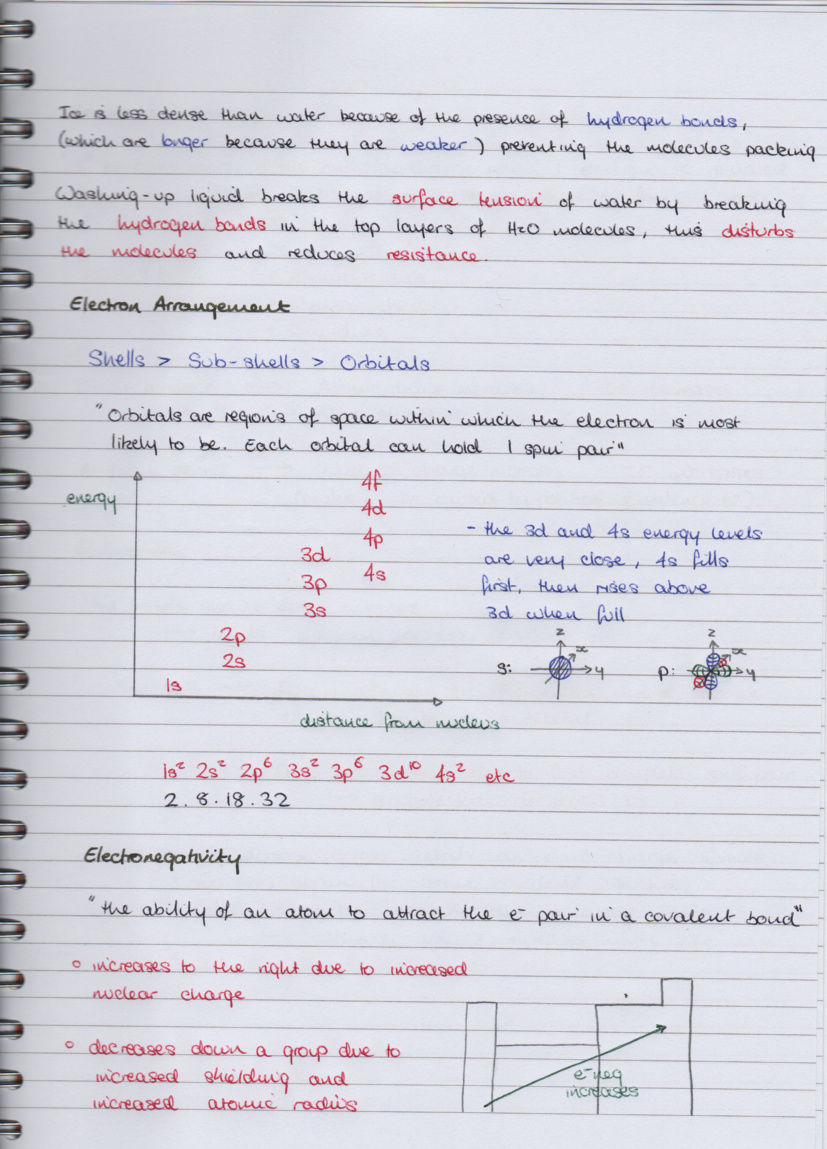 Ice is less dense than water because of the presence of hydrogen bonds,
(which are longer because they are weaker) preventing the molecules packing
Washing-up liquid breaks the surface tension of water by breaking
the hydrogen bonds in the top layers of H₂O molecules, thus disturbs
the molecules and reduces resistance.
Electron Arrangement
Shells > Sub-shells > Orbitals
"Orbitals are regions of space within which the electron is most
likely to be. Each orbital can hold 1 spin pair"
energy
4f
4d
4p
4s
3d
3p
3s
2p
2s
1s
distance from nucleus
- the 3d and 4s energy levels
are very close, 4s fills
first, then rises above
3d when full
s: z x y
p: z x y
1s² 2s² 2p⁶ 3s² 3p⁶ 3d¹⁰ 4s² etc
2.8.18.32
Electronegativity
"the ability of an atom to attract the e⁻ pair in a covalent bond"
o increases to the right due to increased
nuclear charge
o decreases down a group due to
increased shielding and
increased atomic radius
e⁻neg
increases